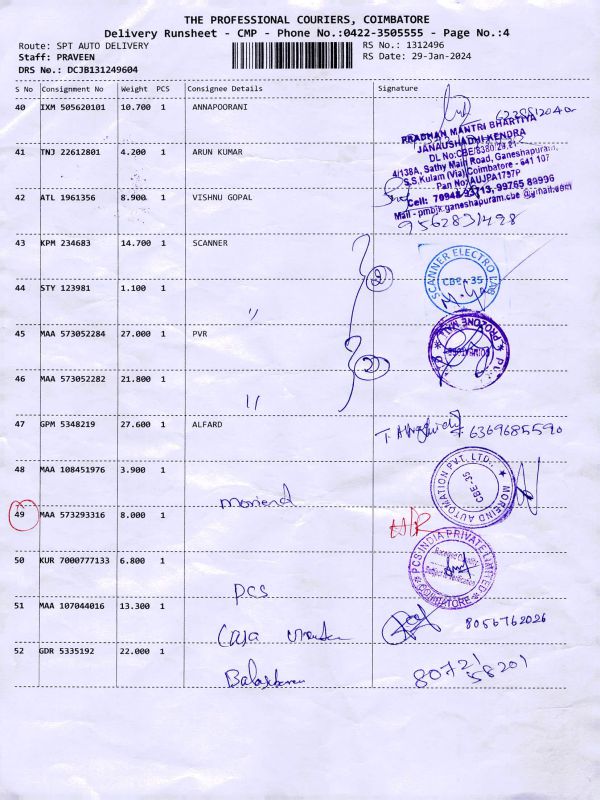 THE PROFESSIONAL COURIERS, COIMBATORE
Delivery Runsheet - CMP - Phone No.:0422-3505555 - Page No.:4
Route: SPT AUTO DELIVERY RS No.: 1312496
Staff: PRAVEEN RS Date: 29-Jan-2024
DRS No.: DCJB131249604
S No Consignment No Weight PCS Consignee Details Signature
40 IXM 505620101 10.700 1 ANNAPOORANI
PRADHAN MANTRI BHARTIYA
JANAUSHADHI KENDRA
DL No:CBE/6380/20,21
4/138A, Sathy Main Road, Ganeshapuram,
S.S.Kulam (Via) Coimbatore - 641 107
Pan No:AUJPA1797P
Cell: 70948 93713, 99765 89996
Mail - pmbjk.ganeshapuram.cbe@gmail.com
41 TNJ 22612801 4.200 1 ARUN KUMAR
42 ATL 1961356 8.900 1 VISHNU GOPAL 9562831498
43 KPM 234683 14.700 1 SCANNER
2
SCANNER ELECTRO LAB
CBE-35
44 STY 123981 1.100 1 "
45 MAA 573052284 27.000 1 PVR
2
PROZONE MALL
COIMBATORE
46 MAA 573052282 21.800 1 "
47 GPM 5348219 27.600 1 ALFARD
6369685590
48 MAA 108451976 3.900 1
MOREIND AUTOMATION PVT. LTD.,
CBE-35
49 MAA 573293316 8.000 1
50 KUR 7000777133 6.800 1 PCS
PCS INDIA PRIVATE LIMITED
COIMBATORE
51 MAA 107044016 13.300 1 Casa
8056762026
52 GDR 5335192 22.000 1
80721
58201